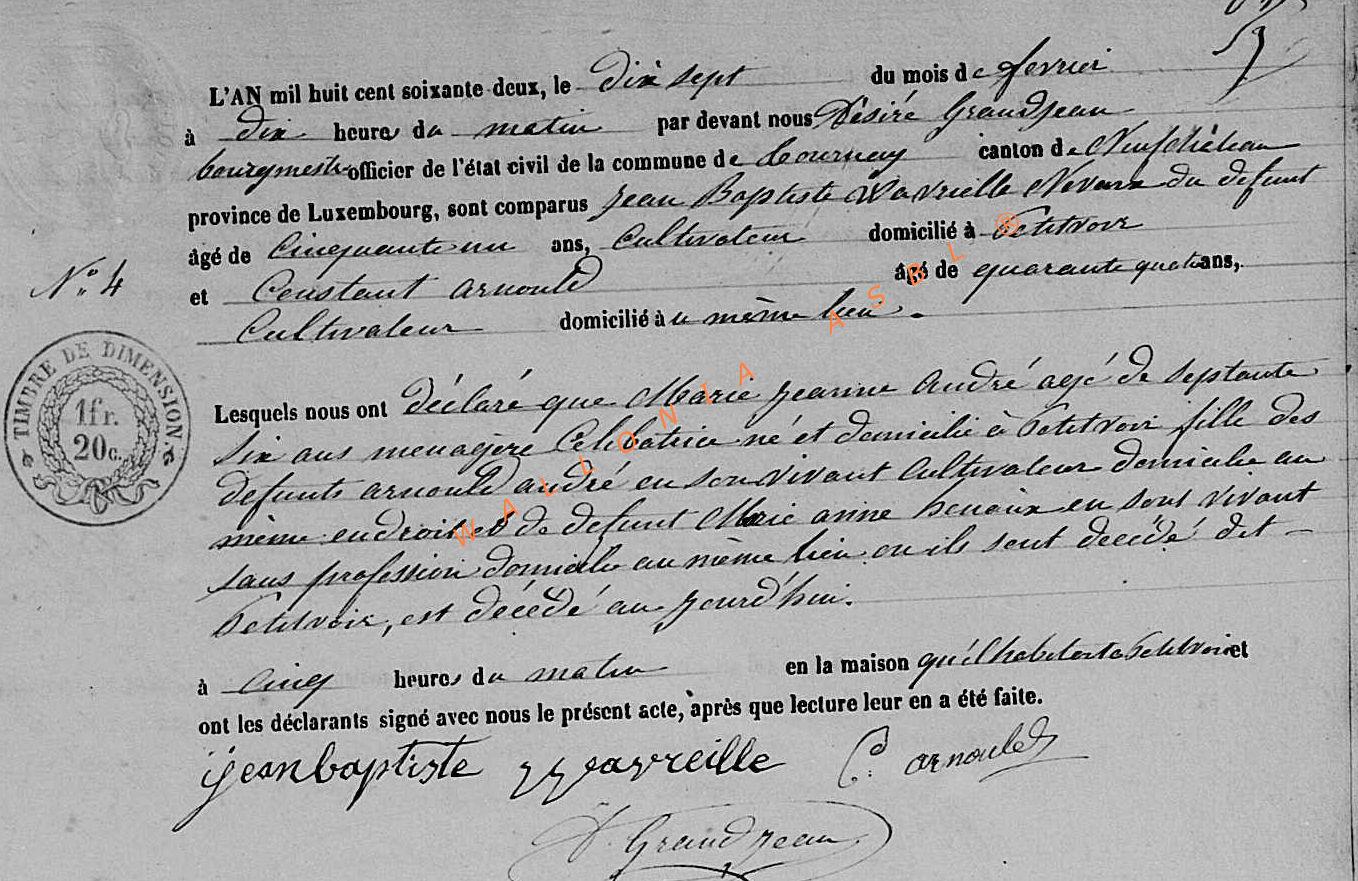 L'AN mil huit cent soixante deux, le dix sept du mois de fevrier
à dix heures du matin par devant nous Désiré Grandjean
bourgmestre officier de l'état civil de la commune de Tournay canton de Neufchâteau
province de Luxembourg, sont comparus Jean Baptiste Wavreille Neveux du defunt
âgé de Cinquante un ans, Cultivateur domicilié à Petitvoir
N° 4
et Constant arnould âgé de quarante quatre ans,
Cultivateur domicilié au même lieu.
TIMBRE DE DIMENSION.
1 fr.
20 c.
Lesquels nous ont déclaré que Marie Jeanne André agé de septante
six ans menagère Célibatrice né et domicilié à Petitvoir fille des
defunts arnould andré en son vivant Cultivateur domicilié au
même endroit et de defunt Marie anne en sont vivant
sans profession domicilié au même lieu ou ils sont decédé dit
Petitvoir, est décédé au jourd'hui.
à cinq heures du matin en la maison qu'il habitait a Petitvoir et
ont les déclarants signé avec nous le présent acte, après que lecture leur en a été faite.
jean baptiste Wavreille C. arnould
D. Grandjean
WALLONIA ASBL ®